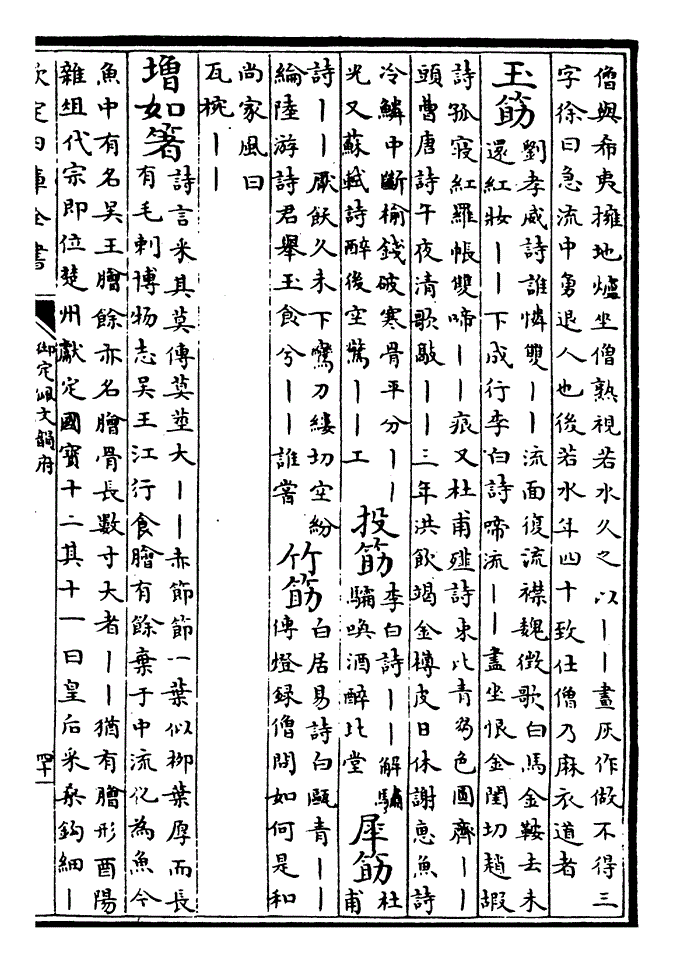 僧與希夷擁地爐坐僧熟視若水久之以丨丨畫灰作做不得三
字徐曰急流中勇退人也後若水年四十致仕僧乃麻衣道者
玉筯
劉孝威詩誰憐雙丨丨流面復流襟魏徵歌白馬金鞍去未
還紅妝丨丨下成行李白詩啼流丨丨盡坐恨金閨切趙嘏
詩孤寢紅羅帳雙啼丨丨痕又杜甫薤詩束比青芻色圓齊丨丨
頭曹唐詩午夜清歌敲丨丨三年洪飲竭金樽皮日休謝惠魚詩
冷鱗中斷榆錢破寒骨平分丨丨
光又蘇軾詩醉後空驚丨丨工
投筯
李白詩丨丨解驌
驦喚酒醉北堂
犀筯
杜
甫
詩丨丨厭飫久未下鸞刀縷切空紛
綸陸游詩君舉玉食兮丨丨誰嘗
竹筯
白居易詩白甌青丨丨
傳燈録僧問如何是和
尚家風曰
瓦椀丨丨
增如箸
詩言采其莫傳莫莖大丨丨赤節節一葉似柳葉厚而長
有毛刺博物志吳王江行食膾有餘棄于中流化為魚今
魚中有名吳王膾餘亦名膾骨長數寸大者丨丨猶有膾形酉陽
雜俎代宗即位楚州獻定國寶十二其十一曰皇后采桑鈎細丨
欽定四庫全書
御定佩文韻府